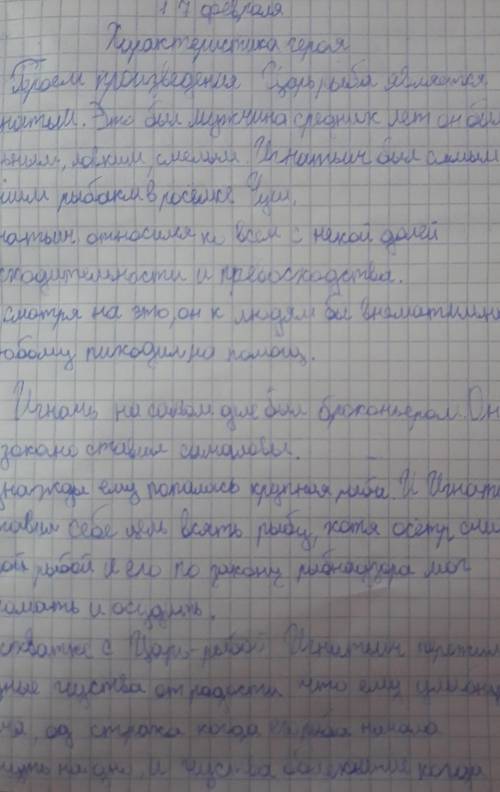 17 февраля
Характеристика героя
Героем произведения Царь рыба является
натьич. Это был мужчина средних лет он был
ьным, ловким, смелым. Игнатьич был самым
шим рыбаком в поселке Чуш.
натьич относился ко всем с некой долей
сходительности и превосходства.
смотря на это, он к людям был внимательным
юбому пиходил на помощ.
Игнать на самом деле был броконьером. Он
законо ставил самаловы.
днажды ему попалась крупная рыба. И Игнать
тавил себе цель взять рыбу, хотя осётр счи
ой рыбой и его по закону рыбнадзора мог
ймать и осудить.
схватке с Царь-рыбой Игнатьич пережил
зные чуства от радости что ему улыбнул
ча, до страха когда его рыба начала
нуть на дно, и чуства облекчение когда